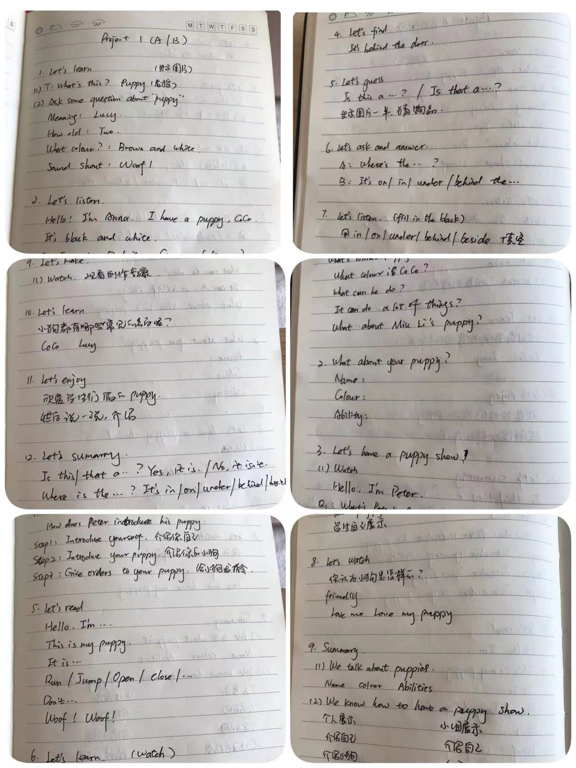 M T W T F S S
Project 1 (A/B)
1. Let's learn (出示图片)
(1) T: What's this? Puppy (看播)
(2) Ask some question about "puppy"
Meaning: Lucy
How old: Two
What colour?: Brown and white
Sound shout: Woof!
2. Let's listen.
Hello! I'm Anna. I have a puppy, CoCo.
It's black and white.
4. Let's find
It's behind the door.
5. Let's guess
Is this a...? / Is that a...?
出示图片一半,猜物品.
6. Let's ask and answer.
A: Where's the ... ?
B: It's on/in/under/behind the...
7. Let's listen. (fill in the black)
用in/on/under/behind/beside 填空
9. Let's make.
(1) Watch.
10. Let's learn
CoCo Lucy
11. Let's enjoy
puppy.
12. Let's summary.
Is this/that a..? Yes, it is. / No, it isn't.
Where is the...? It's in/on/under/behind/
What colour is CoCo?
What can he do?
It can do a lot of things?
What about Miu Li's puppy?
2. What about your puppy?
Name:
Colour:
Ability:
3. Let's have a puppy show!
(1) Watch
Hello. I'm Peter.
How does Peter introduce his puppy
Step1: Introduce yourself. 介绍你自己
Step2: Introduce your puppy. 介绍你的小狗
Step3: Give orders to your puppy.
5. Let's read
Hello. I'm...
This is my puppy.
It is...
Run / Jump / Open / Close /...
Don't...
Woof! Woof!
6. Let's learn (Watch)
学生自己展示
8. Let's watch
你认为小狗是怎样的?
friendly
Love me Love my puppy
9. Summary.
(1) We talk about puppies.
Name colour Abilities
(2) We know how to have a puppy show.
个人展示 小组展示
介绍自己 介绍自己
介绍小狗